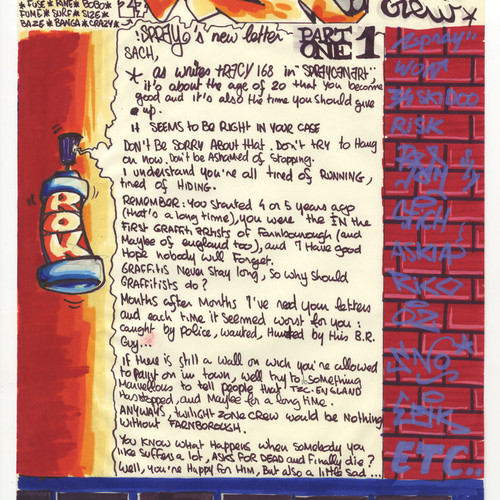 * FUSE * KANE * BOBO *
FUME * SURF * SIZE *
BAZE * BANGA * CRAZY *
CREW *
: SPRAY 6's new letter :
PART ONE 1
SACH,
* as writes tRACY 168 in "SPRAYCAN ART",
it's about the age of 20 that you become
good and it's also the time you should give
up.
It SEEMS to BE RIGHT IN YOUR CASE
DON'T BE SORRY ABOUT tHAt. DON't tRY to HANG
ON NOW. DON't BE ASHAMED OF StOPPING.
I understand you're all tired of RUNNING,
tired of HIDING.
REMEMBER: YOU StARtED 4 OR 5 YEARS AGO
(tHAt's A long time), you were the IN the
FIRST GRAFFiti ARtists of Farnborough (and
Maybe of england too), and I Have good
Hope nobody will Forget.
GRAFFitis Never Stay long, So why Should
GRAFFitists do?
Months after Months I've read your letters
and each time it seemed worst for you:
caught by Police, wanted, Hunted by this B.R.
Guy...
If there is still a wall on wich you're allowed
to Paint on in town, well try to something
Marvellous to tell people that TZC. ENGLAND
Has stopped, and Maybe for a long time.
ANYWAYS, twilight zone CREW would be Nothing
Without FARNBOROUGH.
You know what happens when somebody you
like suffers a lot, ASKS FOR DEAD and Finally die?
Well, you're Happy for HIM, But also a little sad...
BOK
Spray
RISK
ASKIP
RICO
ETC..